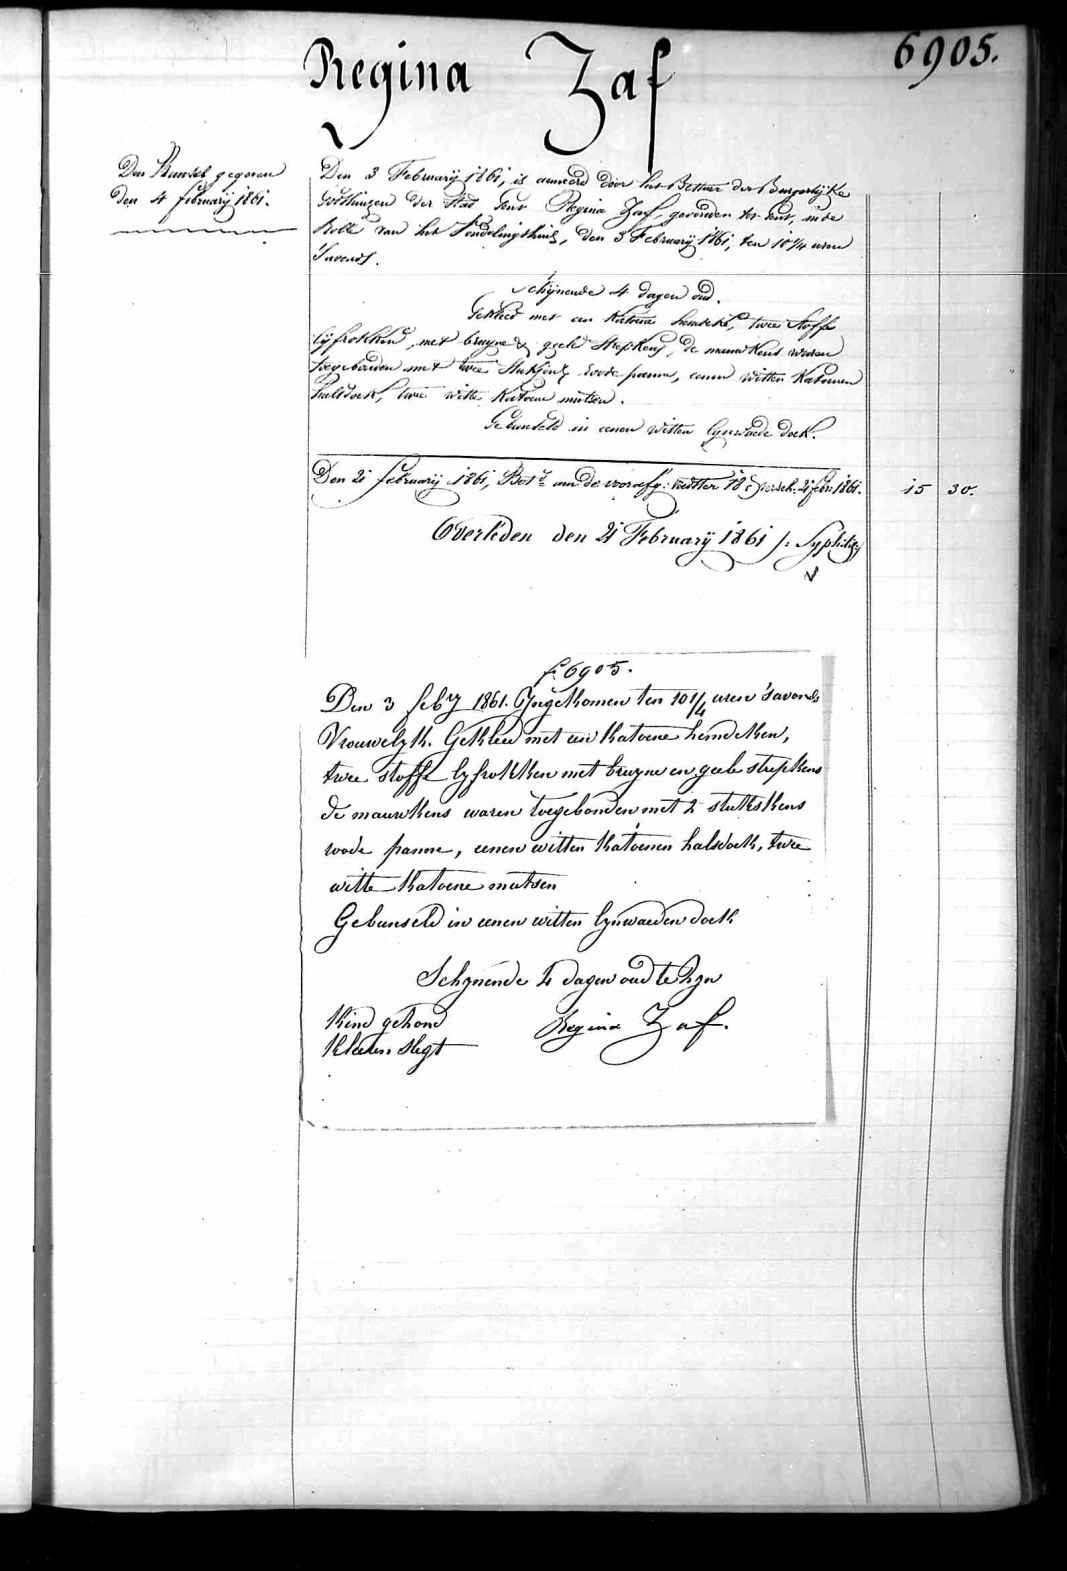 Regina Zaf
6905.
Den Bunsel gegeven
den 4 february 1861.
Den 3 February 1861, is aenveerd door het Bestuer der Burgerlyke
Godshuizen der stad Gent Regina Zaf gevonden tot Gent, in de
Rolle van het Vondelingshuis, den 3 February 1861, ten 10 1/4 uren
'savonds.
Schijnende 4 dagen oud.
Gekleed met een katoene hemdeke, twee stoffe
lijfrokken, met bruyne & geele strepkens, de mauwkens waren
toegebonden met twee stukskens roode panne, eenen witten katoenen
halsdoek, twee witte katoene mutsen.
Gebunseld in eenen witten lynwaede doek.
Den 21 february 1861, Bet.d aen de voorsch: 21 feb: 1861. 15 30.
Overleden den 21 February 1861 /: Syphilis
f.° 6905.
Den 3 feb.y 1861. Ingekomen ten 10 1/4 uren 'savonds
Vrouwelyk. Gekleed met een katoene hemdeken,
twee stoffe lyfrokken met bruyne en geele strepkens
de mauwkens waren toegebonden met 2 stukskens
roode panne, eenen witten katoenen halsdoek, twee
witte katoene mutsen
Gebunseld in eenen witten lynwaeden doek
Schynende 4 dagen oud te zyn
Kind gezond Regina Zaf.
Kleeren slegt